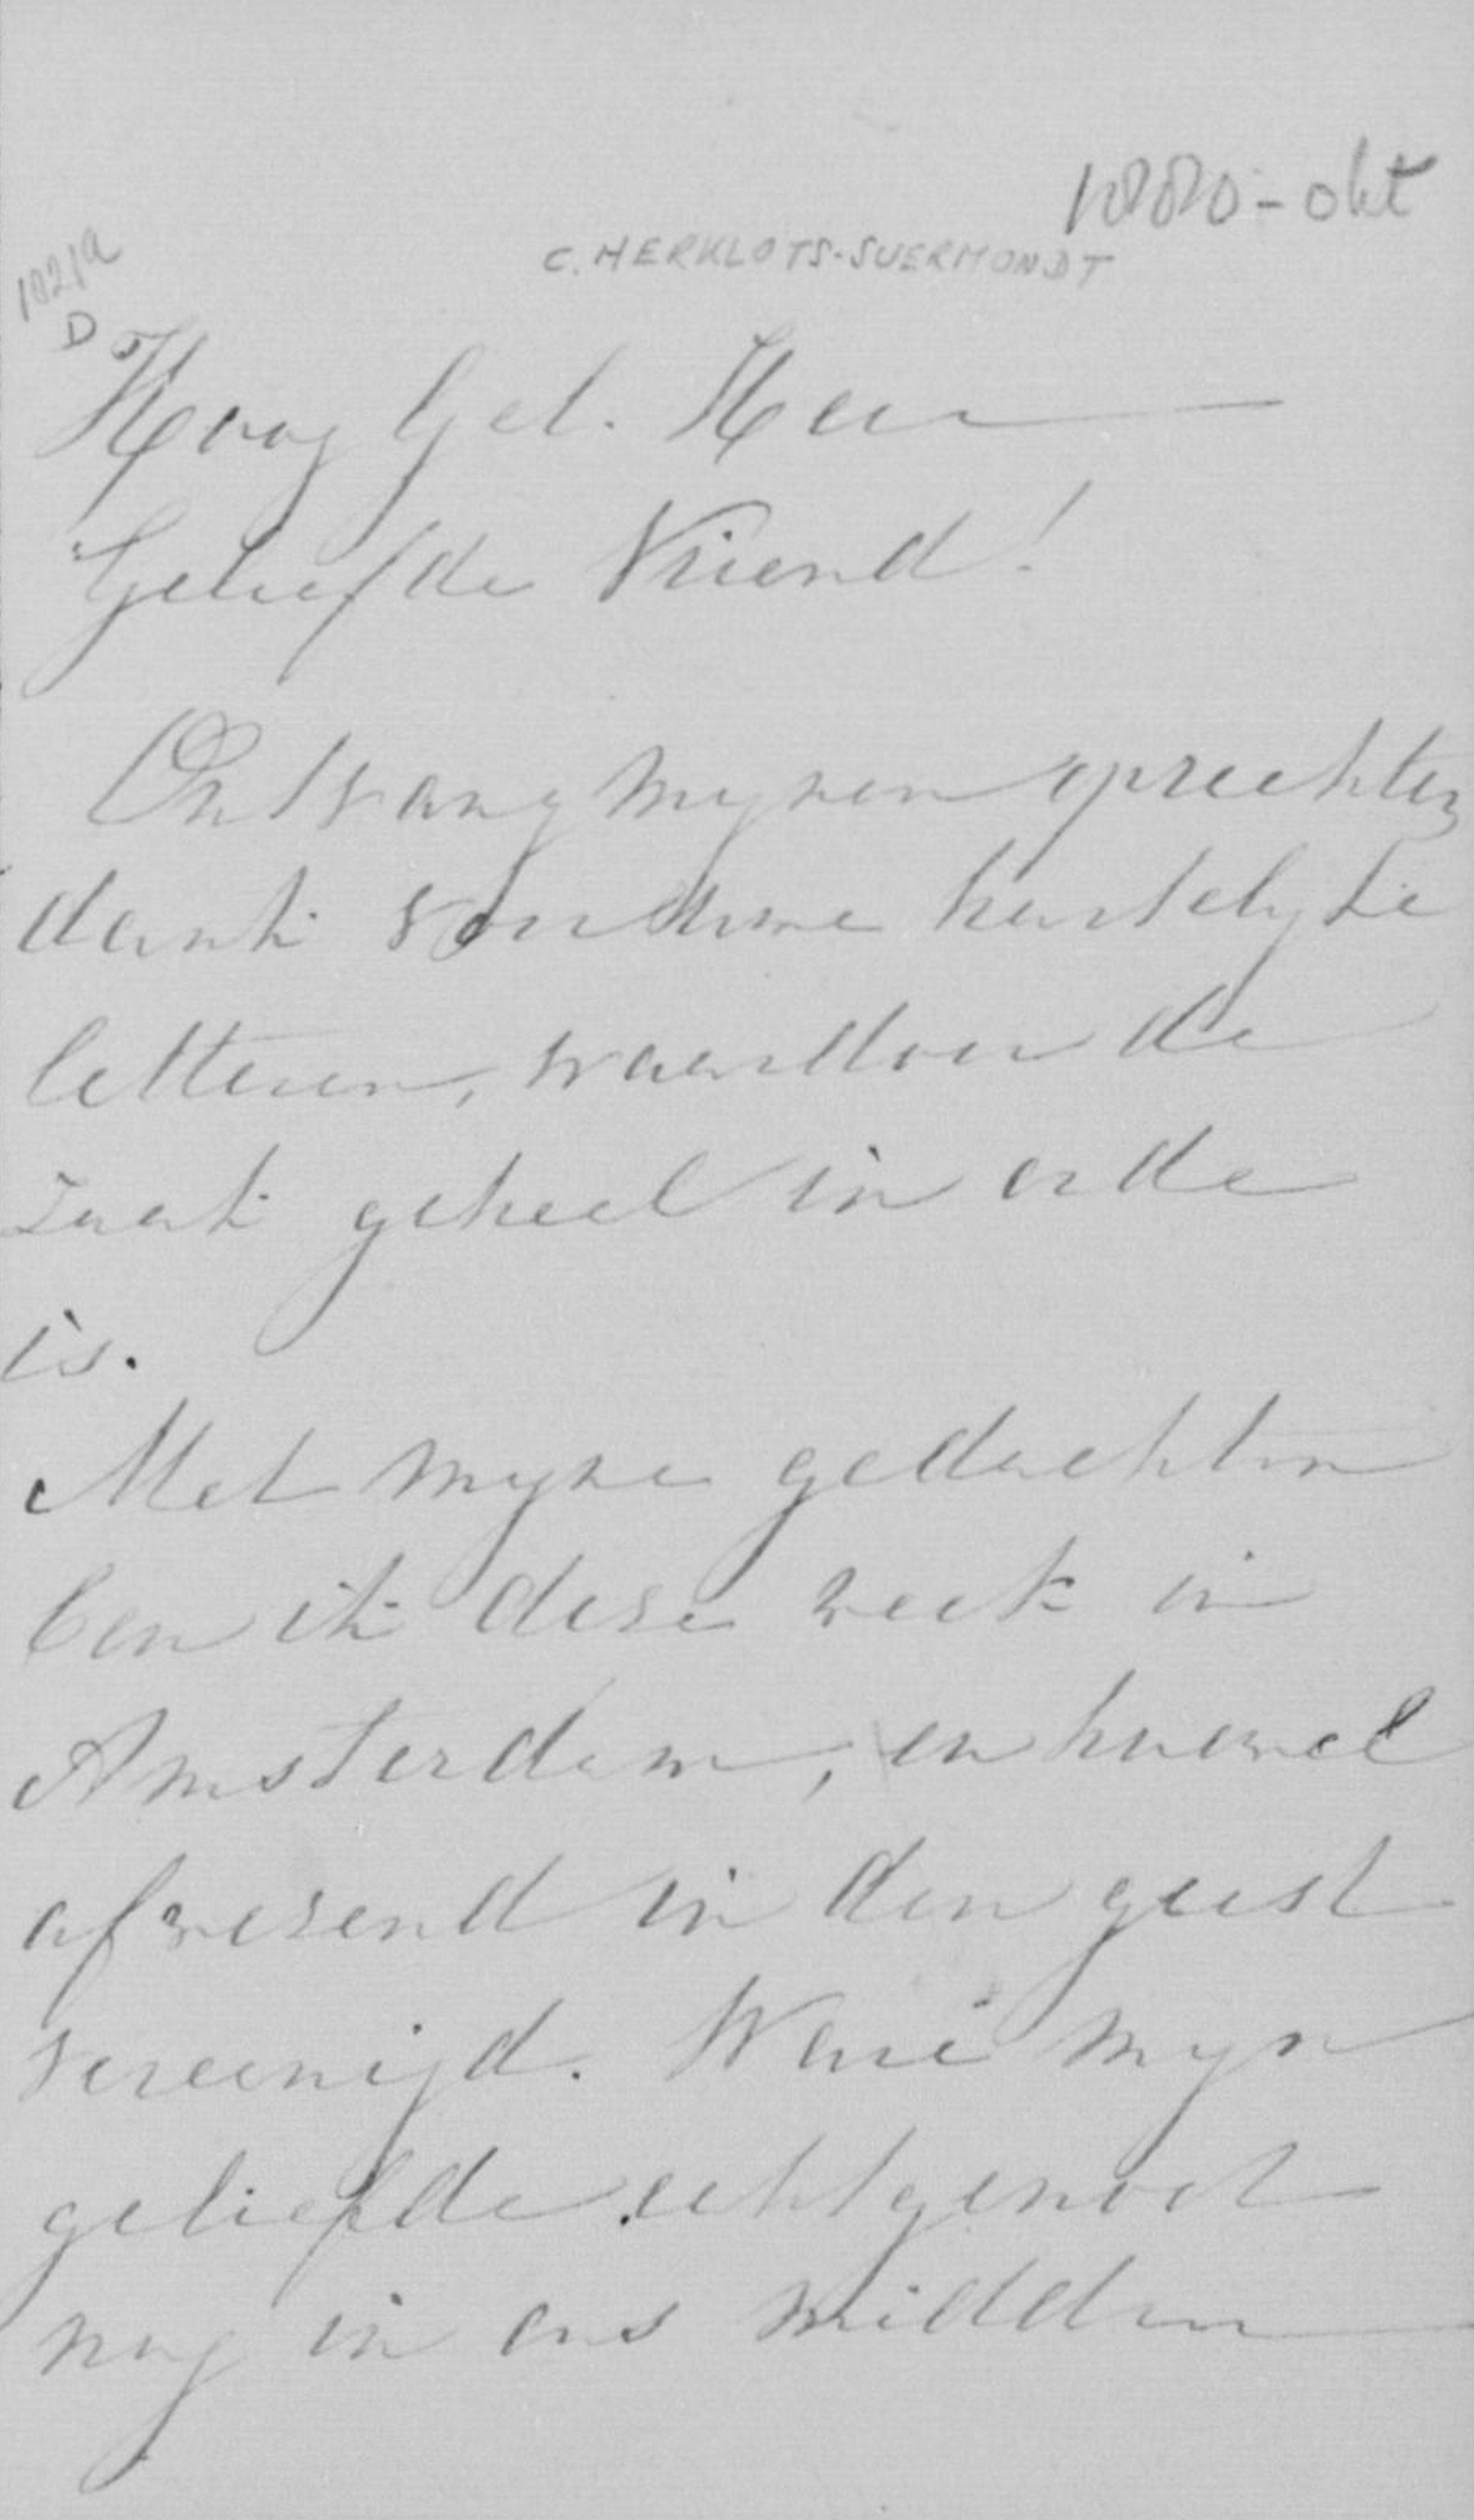 1880-okt
C. HERKLOTS-SUERMONDT
D
Hoog Gel. Heer
Geliefde Vriend!
Ontvang mynen oprechten
dank voor Uwe hartelyke
letteren, waardoor de
zaak geheel in orde
is.
Met myne gedachten
ben ik deze week in
Amsterdam, en hoewel
afwezend in den geest
vereenigd. Ware myn
geliefde echtgenoot
nog in ons midden